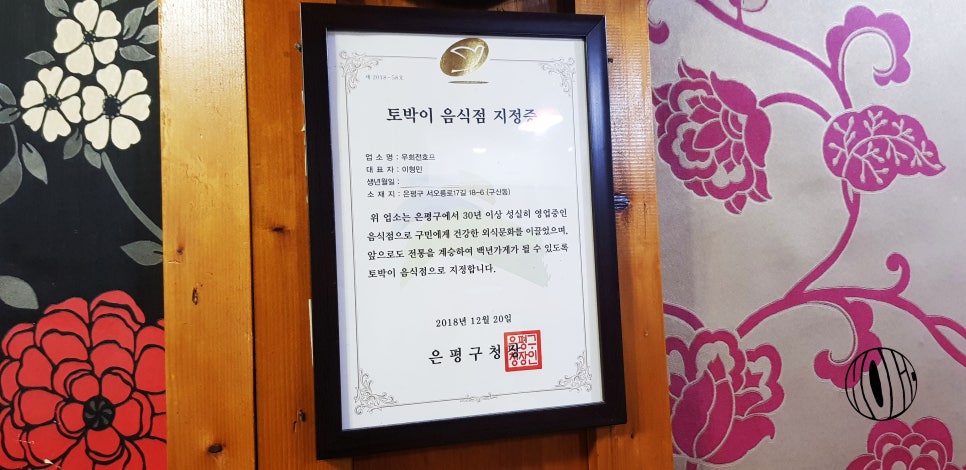 제 2018-58호
토박이 음식점 지정증
업 소 명 : 우회전호프
대 표 자 : 이형민
생년월일 :
소 재 지 : 은평구 서오릉로17길 18-6 (구산동)
위 업소는 은평구에서 30년 이상 성실히 영업중인
음식점으로 구민에게 건강한 외식문화를 이끌었으며,
앞으로도 전통을 계승하여 백년가게가 될 수 있도록
토박이 음식점으로 지정합니다.
2018년 12월 20일
은 평 구 청 장
은평구
청장인